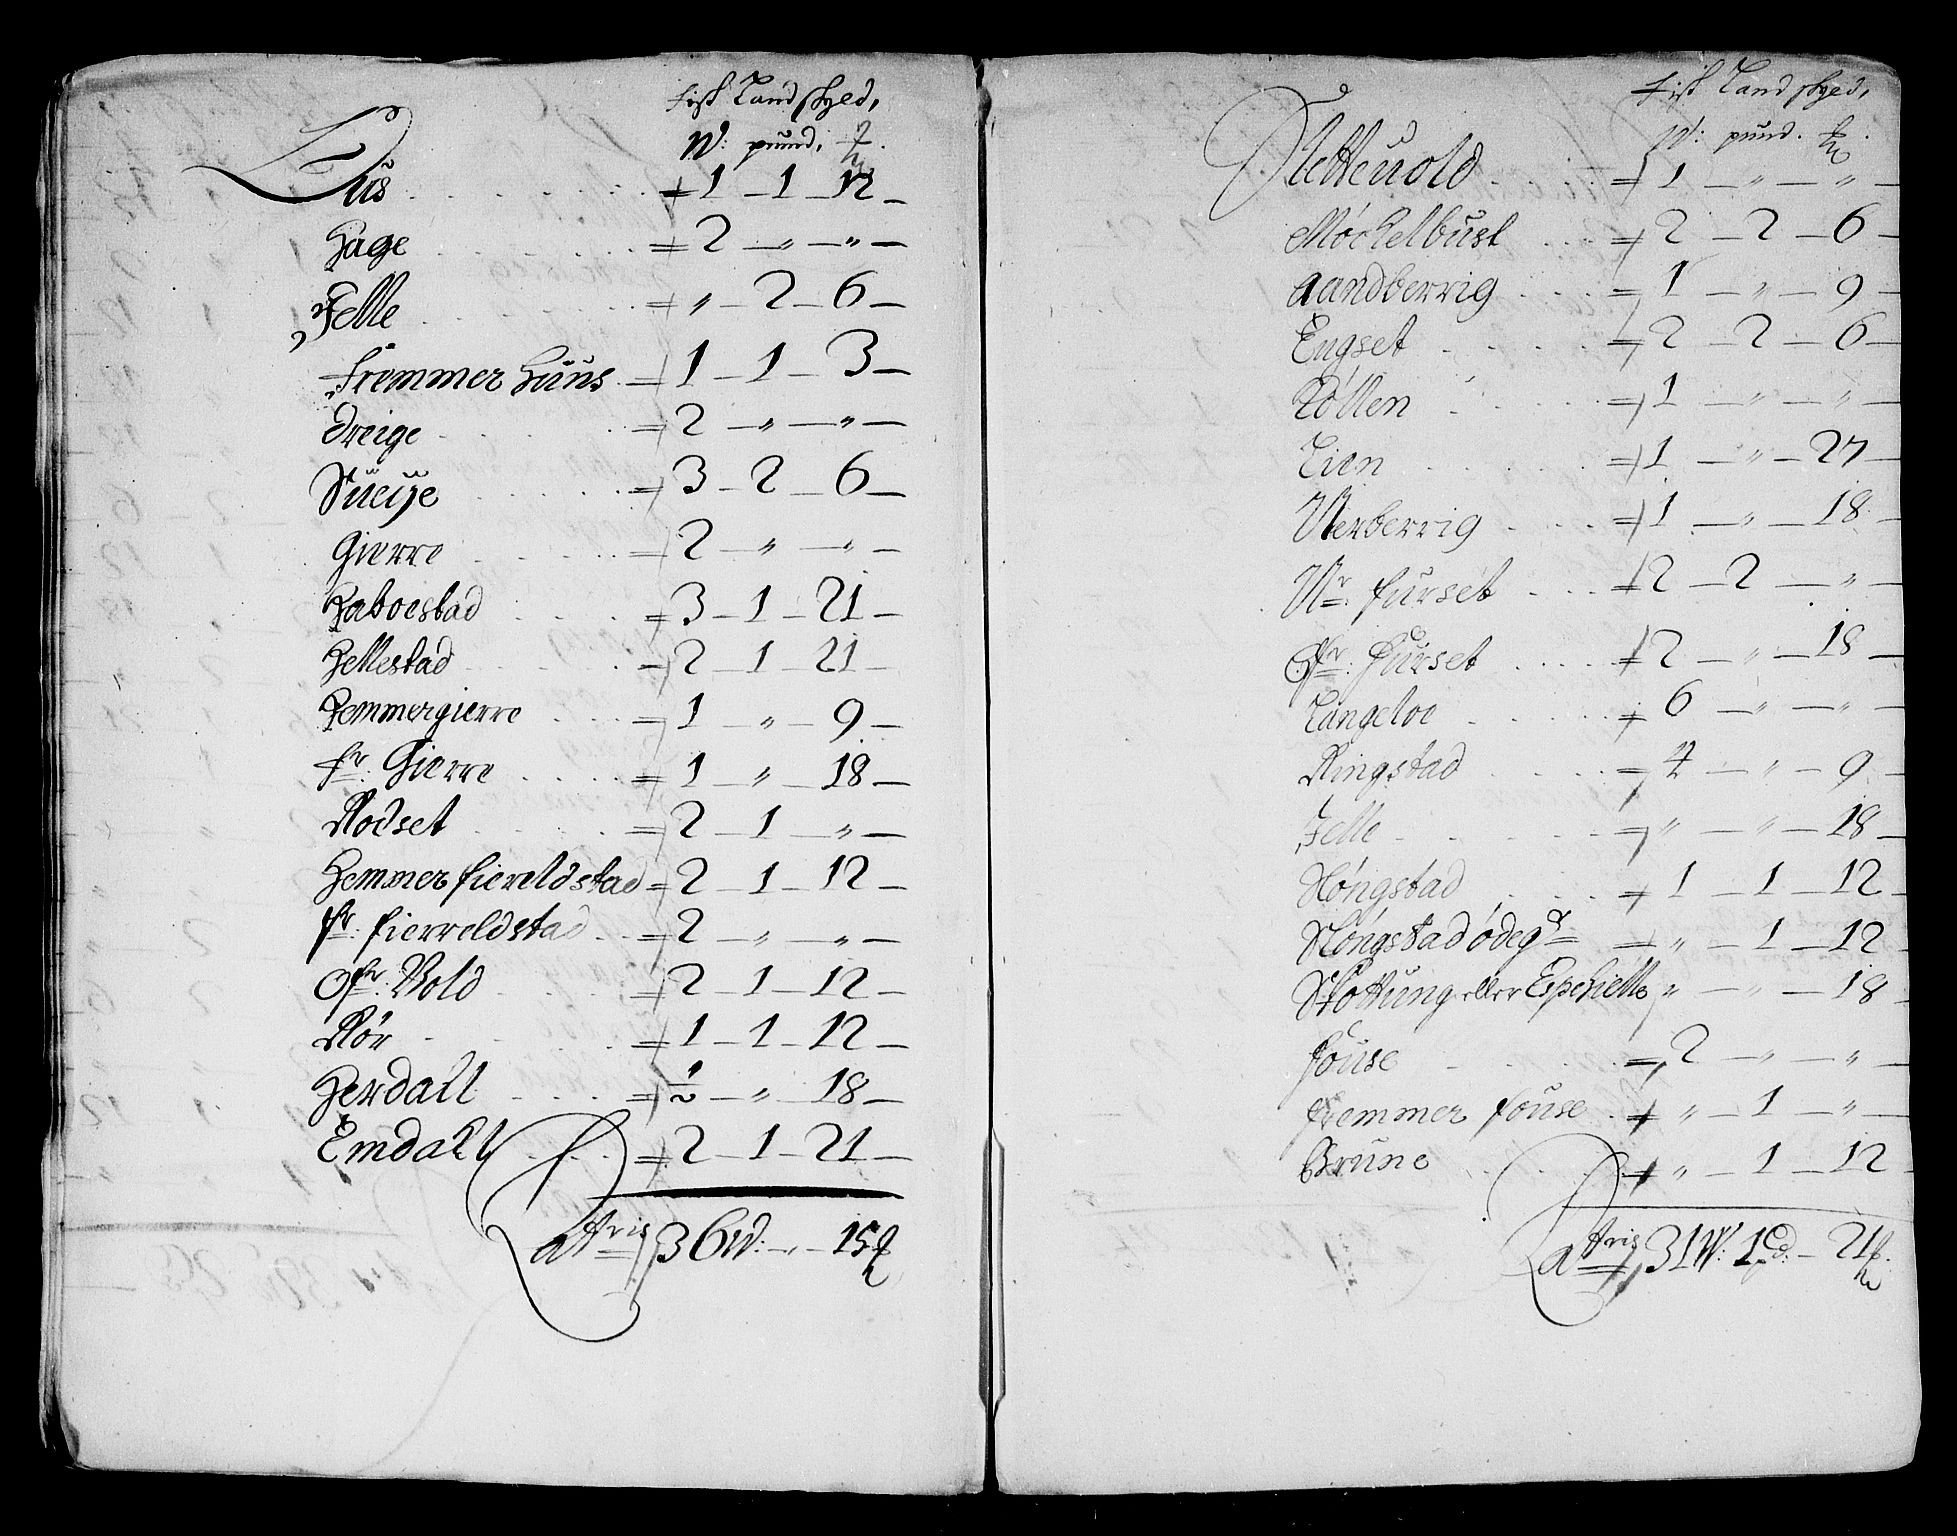 fisk Landskyld,
W: pund, ℔.
Lius = 1 – 1 – 12 –
Hage = 2 – „ – „ –
Felle = „ – 2 – 6 –
Fremmer Huus = 1 – 1 – 3 –
Dreige = 2 – „ – „ –
Sueije = 3 – 2 – 6 –
Gierre = 2 – „ – „ –
Raboestad = 3 – 1 – 21 –
Hellestad = 2 – 1 – 21 –
Remmergierre = 1 – „ – 9 –
fr: Gierre = 1 „ – 18 –
Rodset = 2 – 1 – „ –
Hemmer fiereldstad = 2 – 1 – 12 –
fr: fierreldstad = 2 – „ – „ –
Ofr: Vold = 2 – 1 – 12 –
Rór = 1 – 1 – 12 –
Herdall = ½ – „ – 18 –
Emdall = 2 – 1 – 21 –
Latris 36 W: – „ – 15 ℔
fisk Landskyld,
W: pund. ℔.
Sletteuold = 1 – „ – „ –
Móckelbust = 2 – 2 – 6 –
Aandberrig = 1 – „ – 9 –
Engset = 2 – 2 – 6 –
Róllen = 1 – „ – „ –
Lien = 1 – „ – 27 –
Verberrig = 1 – „ – 18 –
Nr: furset = 2 – 2 – „ –
Ofr: Furset = 2 – „ – 18 –
Langeloe = 6 – „ – „ –
Ringstad = 4 – „ – 9 –
Felle = „ – „ – 18 –
Slóngstad = 1 – 1 – 12 –
Slóngstad ódegr – „ – 1 – 12 –
Stottung eller Espehielle „ – „ – 18 –
fouse = 2 – „ – „ –
fremmer fouse = „ – 1 – „ –
Brune = „ – 1 – 12
Latris 31 W: 1 pd: – 21 ℔.